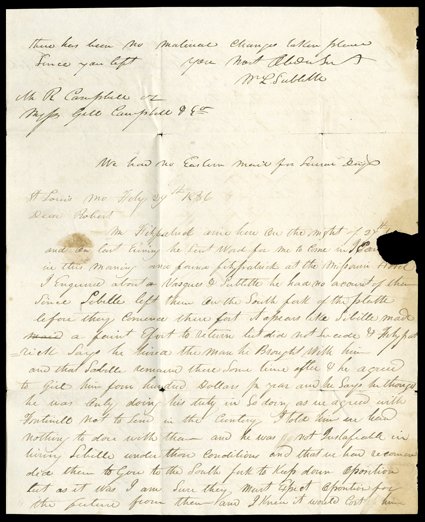 there has been no material changes taken place
Since you left your Most Obdn Svt
Wm L Sublette
Mr R Campbell or
Messrs Gill Campbell & Co
We had no Eastern mail for Several Days
St Louis Mo Feby 29th 1836
Dear Robert
Mr Fitzpatrick arive here on the night of
and on last Evning he Sent Word for me to Come in I Came
in this Morning and found fitzpatrick at the Missouri Hotel
I Enquired about Vasques & Sublette he had no account of them
Since Sebille left them on the South fork of the platte
before they Comence there fort it apears like Sebille made
a faint Efort to return but did not Sucede & Fitzpat
=rick Says he hired the Man he Brought With him
and that Sebille remaind there Some time after & he agreed
to give him four hundred Dollars pr year and he Says he though
he was only doing his duty in So doing as we agreed with
Fontinell not to in the Cuntry I told him we had
nothing to doe with that and he was not Justafiable in
hiring Sebille under those Conditions and that we had recomen
dive them to Goe to the South fork to Keep down Oposition
but as it was I am Sure they Must Expect Oposition for
the future from them and I Knew it would Cost him